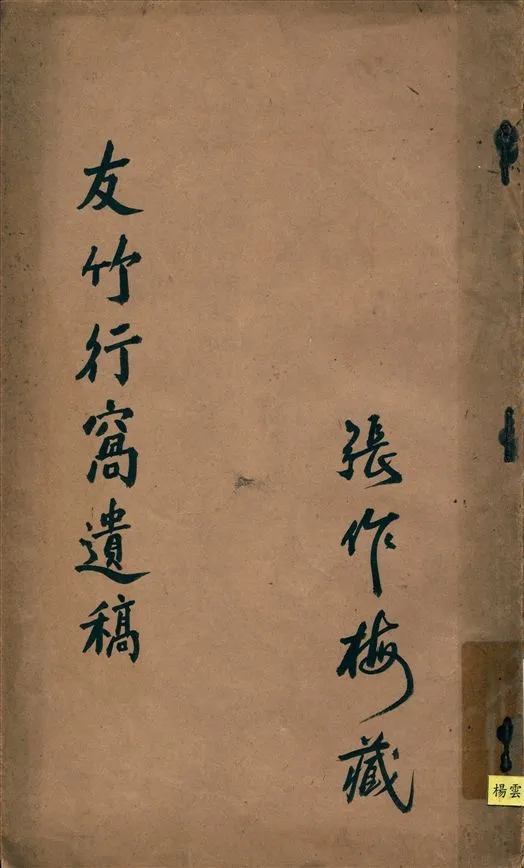 張作梅藏
友竹行窩遺稿
楊雲